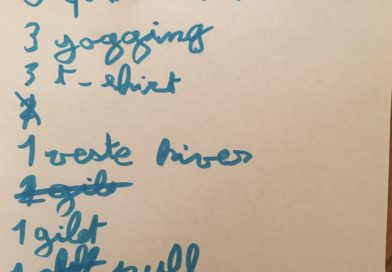 3 yogging
3 t-shirt
1 veste hiver
1 gilet
1 pull